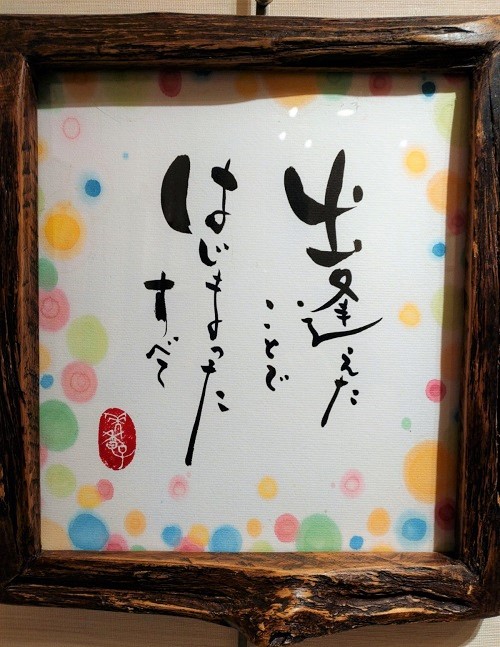 出逢えた
ことで
はじまった
すべて